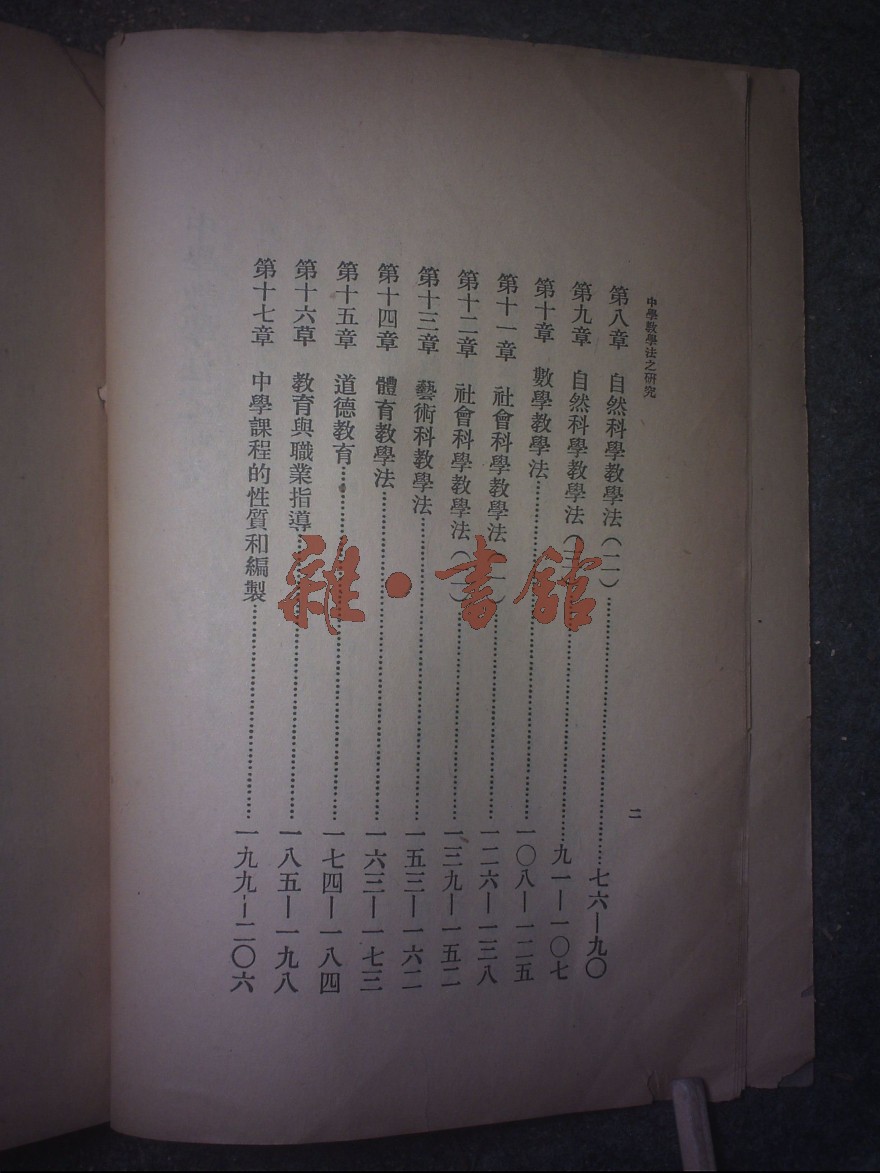 中學教學法之研究
二
第八章 自然科學教學法(二)……七六—九〇
第九章 自然科學教學法(三)……九一—一〇七
第十章 數學教學法……一〇八—一二五
第十一章 社會科學教學法(一)……一二六—一三八
第十二章 社會科學教學法(二)……一三九—一五二
第十三章 藝術科教學法……一五三—一六二
第十四章 體育教學法……一六三—一七三
第十五章 道德教育……一七四—一八四
第十六草 教育與職業指導……一八五—一九八
第十七章 中學課程的性質和編製……一九九—二〇六
雜·書館